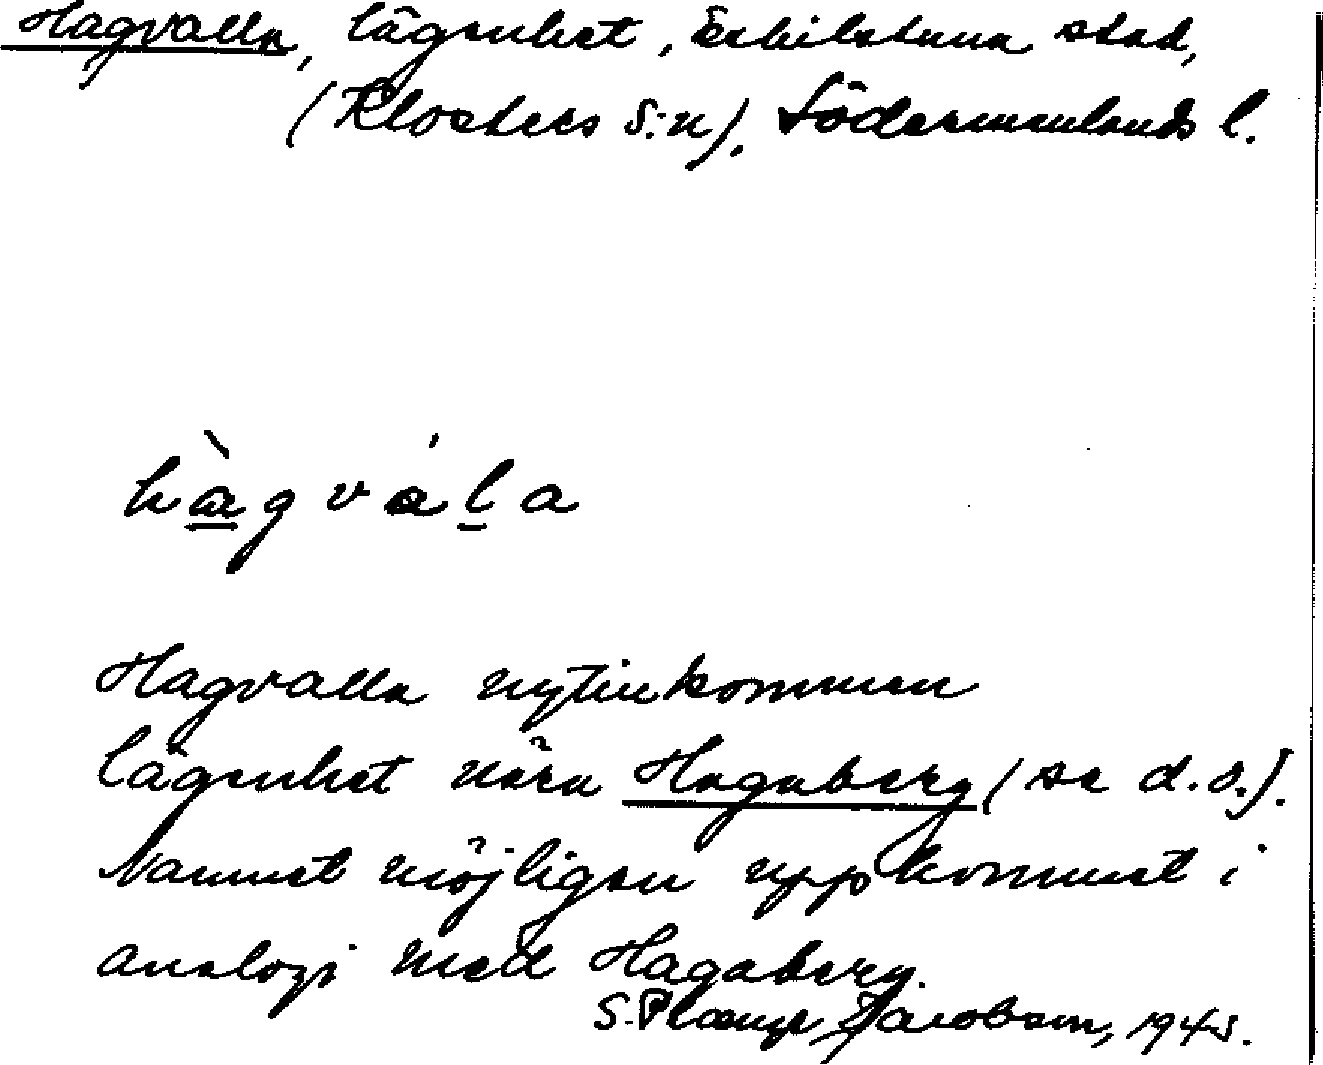 Hagvalla, lägenhet, Eskilstuna stad,
(Klosters s:n). Södermanlands l.
hàgvála
Hagvalla nytillkommen
lägenhet nära Hagaberg (se d.o.).
Namnet möjligen uppkommet i
analogi med Hagaberg.
S. Jacobson, 1945.